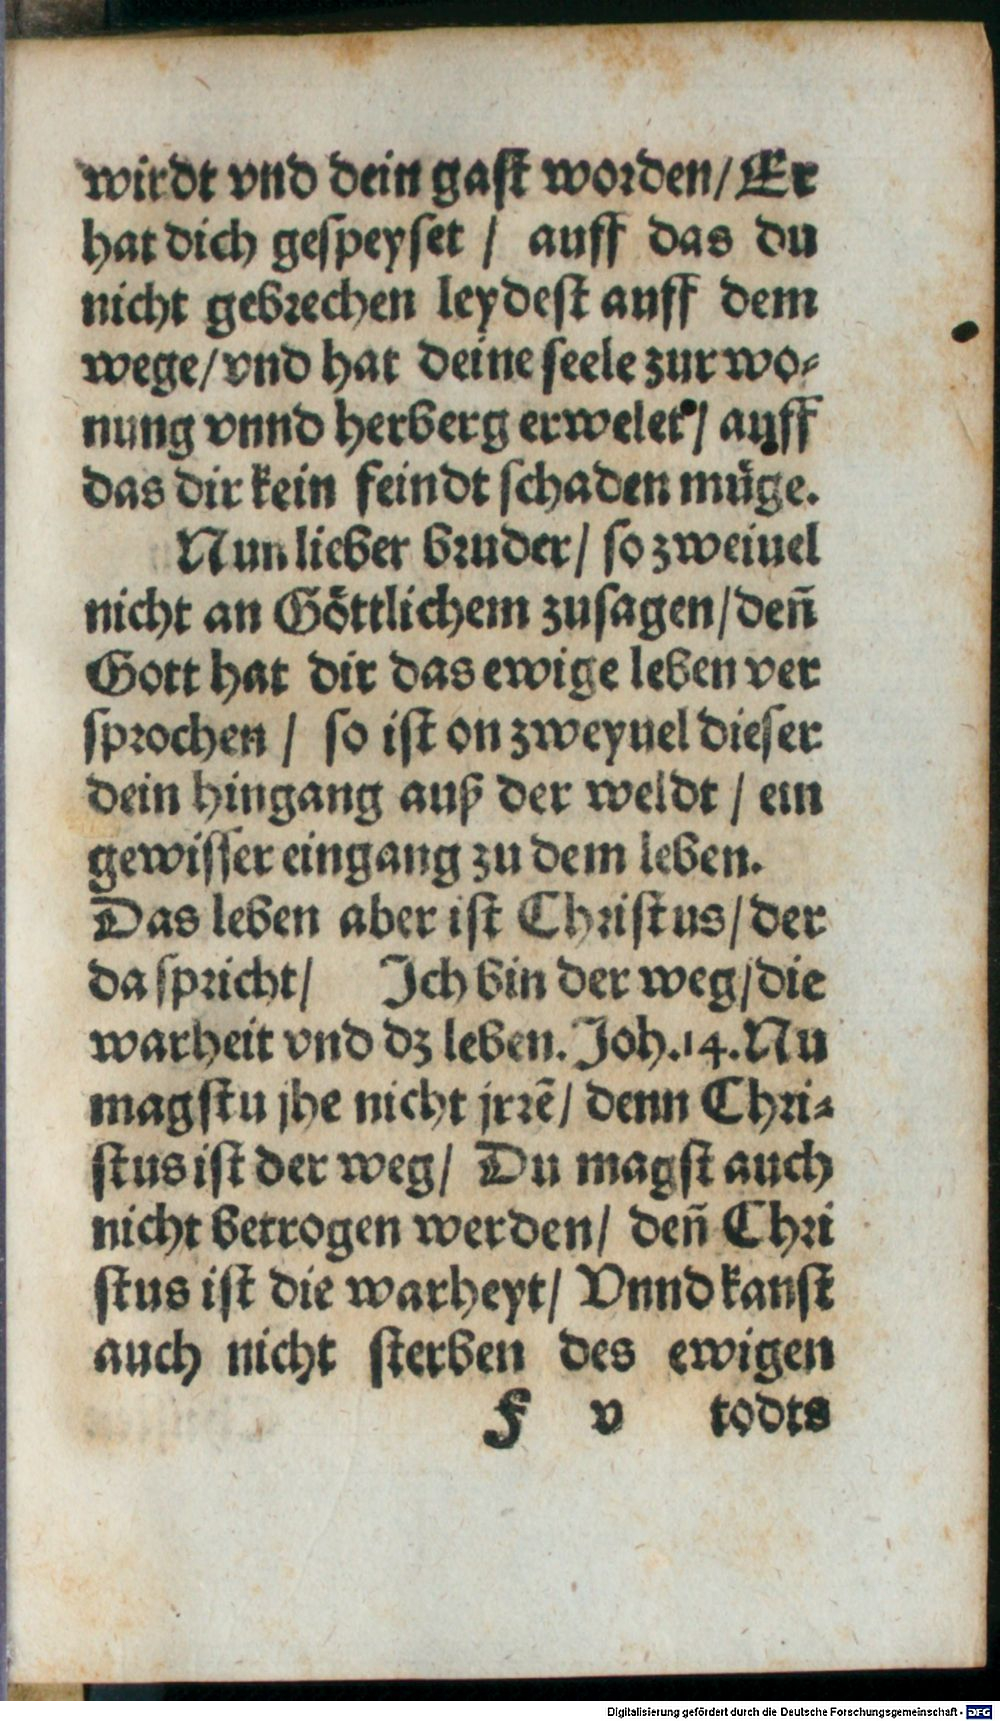 wirdt vnd dein gast worden/ Er
hat dich gespeyset / auff das du
nicht gebrechen leydest auff dem
wege/ vnd hat deine seele zur wo-
nung vnnd herberg erwelet/ auff
das dir kein feindt schaden müge.
Nun lieber bruder/ so zweiuel
nicht an Göttlichem zusagen/ deñ
Gott hat dir das ewige leben ver
sprochen / so ist on zweyuel dieser
dein hingang auß der weldt / ein
gewisser eingang zu dem leben.
Das leben aber ist Christus/ der
da spricht/ Ich bin der weg/ die
warheit vnd dz leben. Joh.14. Nu
magstu jhe nicht jrrē/ denn Chri-
stus ist der weg/ Du magst auch
nicht betrogen werden/ deñ Chri
stus ist die warheyt/ Vnnd kanst
auch nicht sterben des ewigen
F v todts
Digitalisierung gefördert durch die Deutsche Forschungsgemeinschaft - DFG